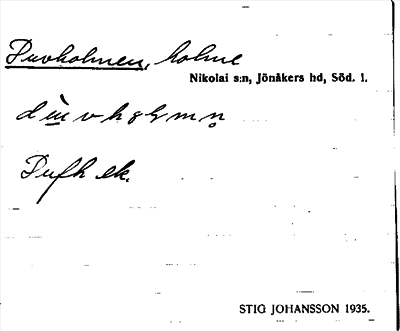 Duvholmen, holme
Nikolai s:n, Jönåkers hd, Söd. l.
Dufh ek.
STIG JOHANSSON 1935.